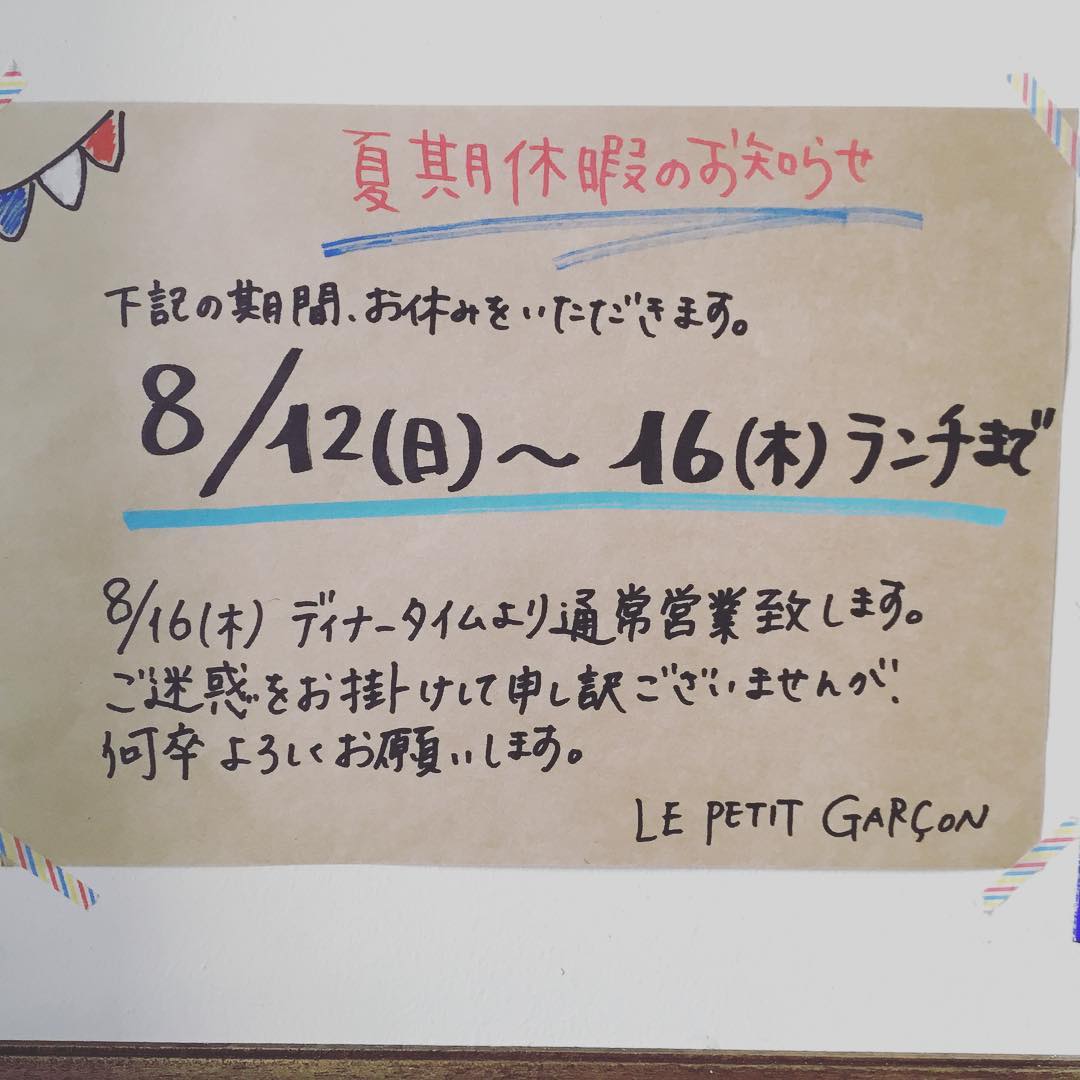 夏期休暇のお知らせ
下記の期間、お休みをいただきます。
8/12(日)～16(木)ランチまで
8/16(木) ディナータイムより通常営業致します。
ご迷惑をお掛けして申し訳ございませんが、
何卒よろしくお願いします。
LE PETIT GARÇON